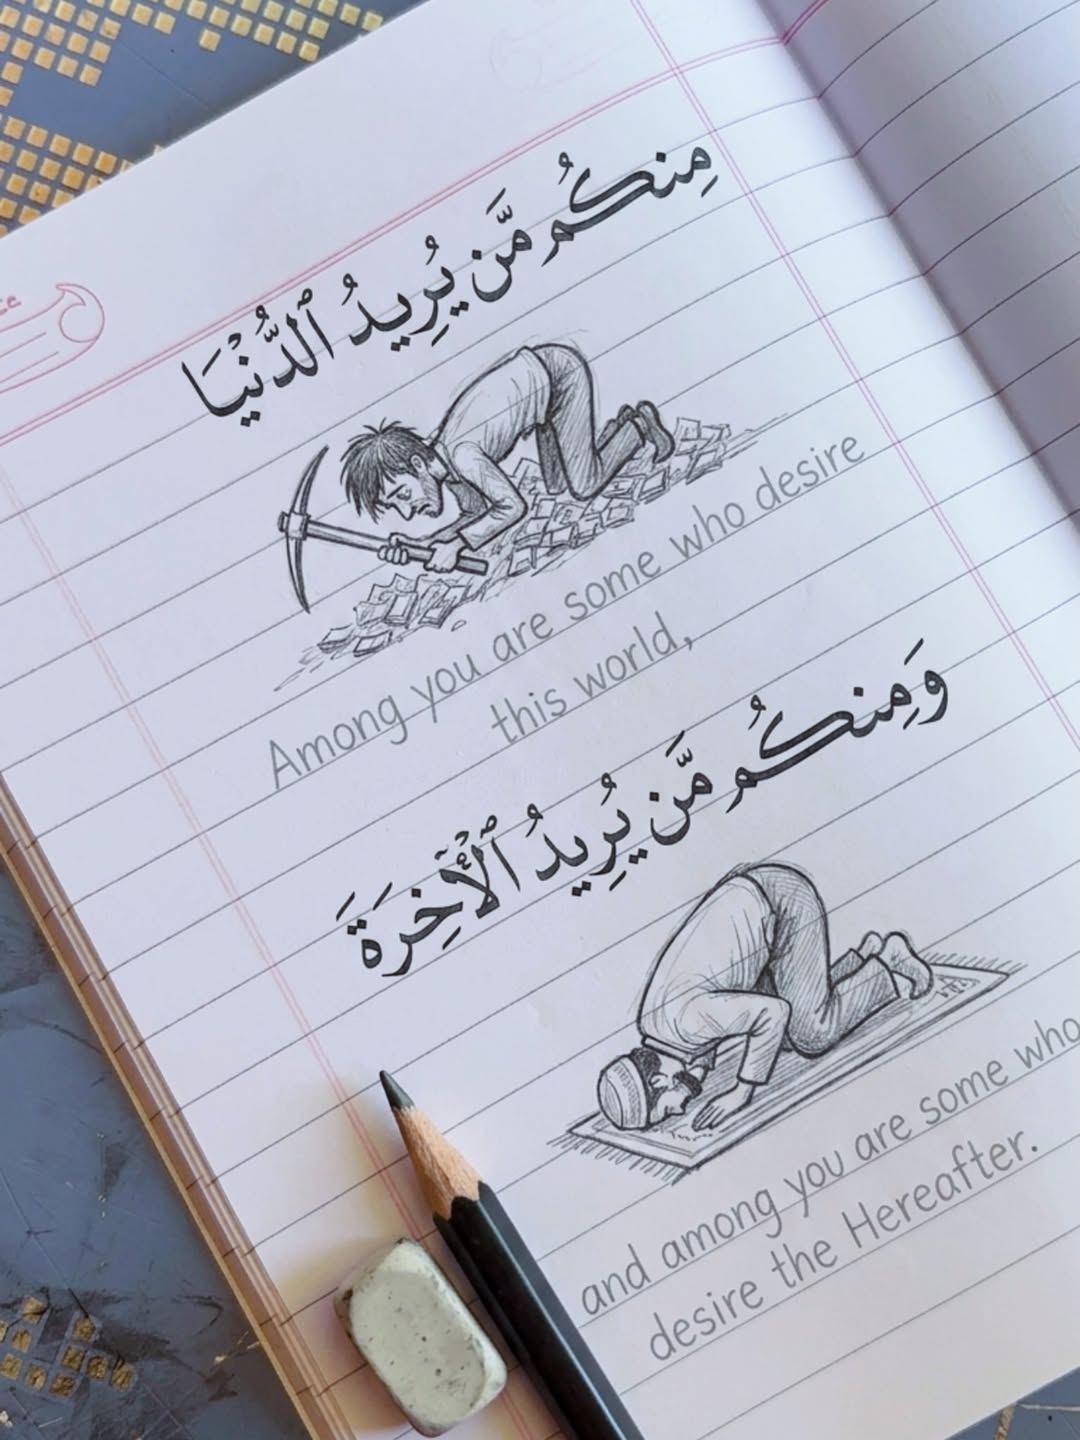 مِنكُم مَّن يُرِيدُ ٱلدُّنْيَا
Among you are some who desire
this world,
وَمِنكُم مَّن يُرِيدُ ٱلْأَخِرَةَ
and among you are some who
desire the Hereafter.